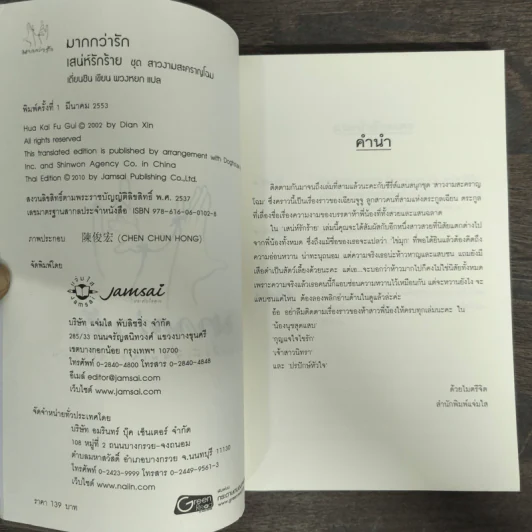 มากกว่ารัก
มากกว่ารัก
เสน่ห์รักร้าย ชุด สาวงามสะคราญโฉม
เตี่ยนซิน เขียน พวงหยก แปล
พิมพ์ครั้งที่ 1 มีนาคม 2553
Hua Kai Fu Gui © 2002 by Dian Xin
All rights reserved
This translated edition is published by arrangement with
Inc. and Shinwon Agency Co. in China
Thai Edition © 2010 by Jamsai Publishing Co.,Ltd.
สงวนลิขสิทธิ์ตามพระราชบัญญัติลิขสิทธิ์ พ.ศ. 2537
เลขมาตรฐานสากลประจำหนังสือ ISBN 978-616-06-0102-8
ภาพประกอบ 陳俊宏 (CHEN CHUN HONG)
จัดพิมพ์โดย
jamsai
บริษัท แจ่มใส พับลิชชิ่ง จำกัด
285/33 ถนนจรัญสนิทวงศ์ แขวงบางขุนศรี
เขตบางกอกน้อย กรุงเทพฯ 10700
โทรศัพท์ 0-2840-4800 โทรสาร 0-2840-4848
อีเมล์ editor@jamsai.com
เว็บไซต์ www.jamsai.com
จัดจำหน่ายทั่วประเทศโดย
บริษัท อมรินทร์ บุ๊ค เซ็นเตอร์ จำกัด
108 หมู่ที่ 2 ถนนบางกรวย-จงถนอม
ตำบลมหาสวัสดิ์ อำเภอบางกรวย จ.นนทบุรี 11130
โทรศัพท์ 0-2423-9999 โทรสาร 0-2449-9561-3
เว็บไซต์ www.naiin.com
ราคา 139 บาท
Green
คำนำ
ติดตามกันมาจนถึงเล่มที่สามแล้วนะคะกับซีรี่ส์แสนสนุกชุด สาวงามสะคราญ
โฉม ซึ่งคราวนี้เป็นเรื่องราวของเฉียนซูซู ลูกสาวคนที่สามแห่งตระกูลเฉียน ตระกูล
ที่เลื่องชื่อเรื่องความงามของบรรดาห้าพี่น้องที่ทั้งสวยและแสนฉลาด
ใน เสน่ห์รักร้าย เล่มนี้คุณจะได้สัมผัสกับอีกหนึ่งสาวสวยที่นิสัยแตกต่างไป
จากพี่น้องทั้งหมด ซึ่งถึงแม้ชื่อของเธอจะแปลว่า ไข่มุก ที่พอได้ยินแล้วต้องคิดถึง
ความอ่อนหวาน น่าทะนุถนอม แต่ความจริงเธอน่ะห้าวหาญและแสนซน แถมยังมี
เสือดำเป็นสัตว์เลี้ยงด้วยนะคะ แต่เอ...จะบอกว่าห้าวมากไปก็คงไม่ใช่นิสัยทั้งหมด
เพราะความจริงแล้วเธอคนนี้ก็แอบซ่อนความหวานไว้เหมือนกัน แต่จะหวานยังไง จะ
แสบซนแค่ไหน ต้องลองพลิกอ่านด้านในดูแล้วล่ะค่ะ
อ้อ อย่าลืมติดตามเรื่องราวของห้าสาวพี่น้องให้ครบทุกเล่มนะคะ ใน
น้องนุชสุดแสบ
กุญแจใจไขรัก
เจ้าสาวนิทรา
และ ปรปักษ์หัวใจ
ด้วยไมตรีจิต
สำนักพิมพ์แจ่มใส